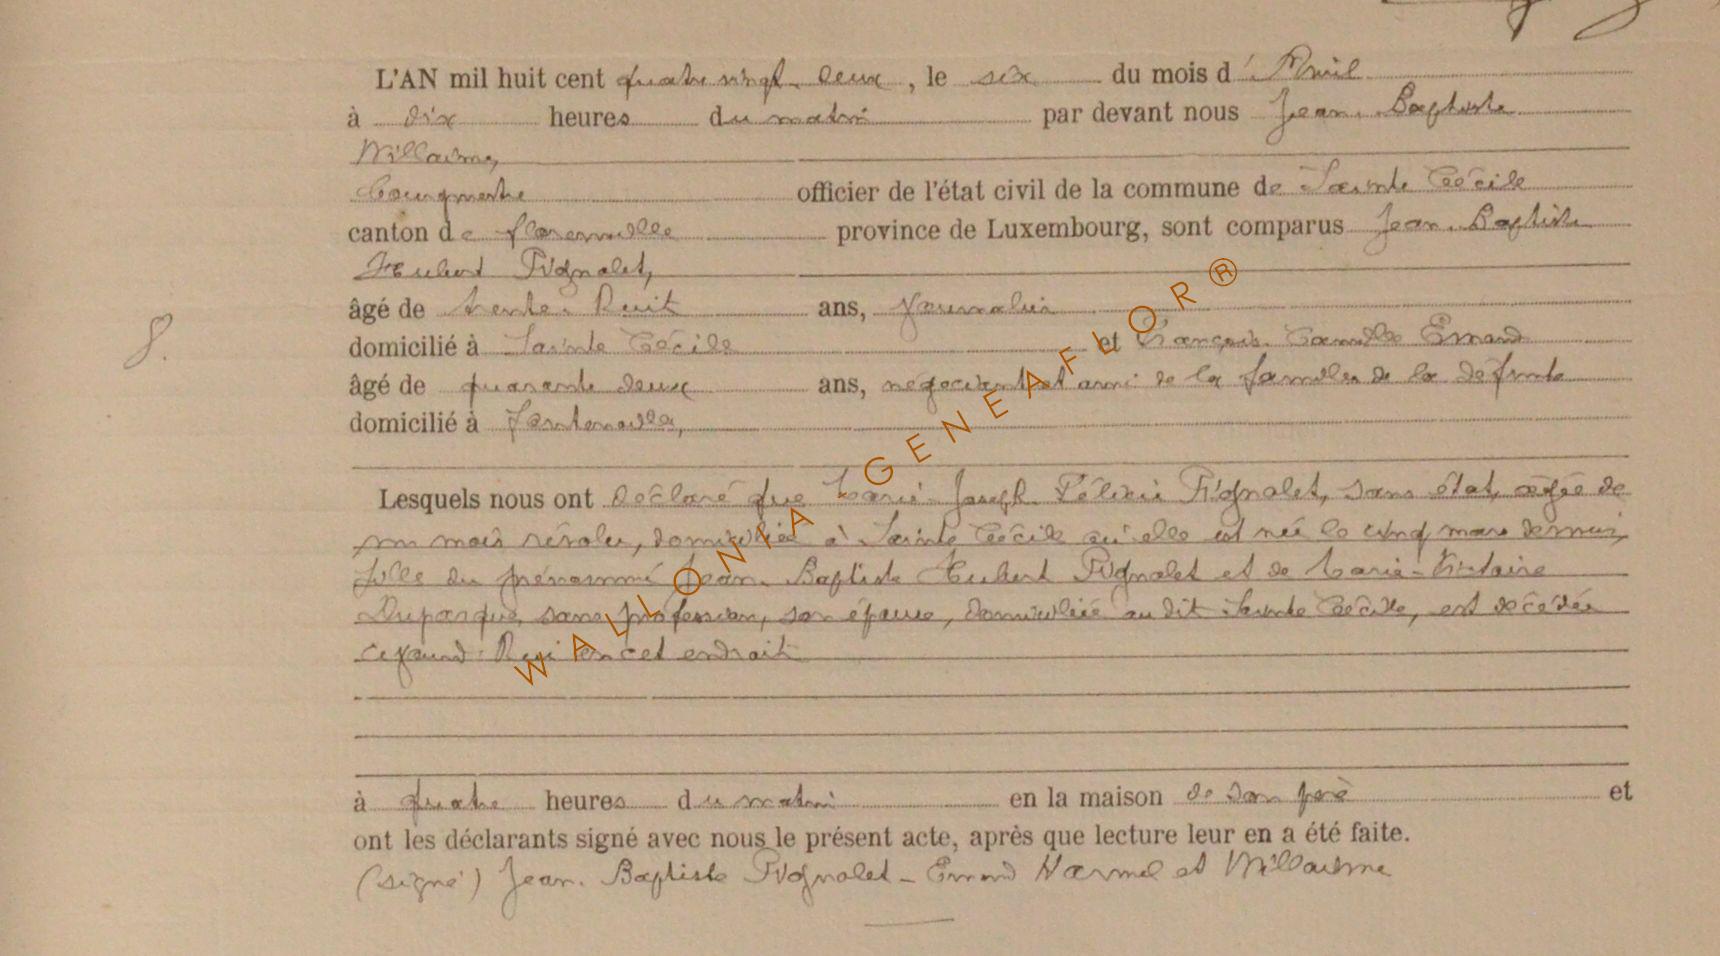 L'AN mil huit cent quatre vingt deux, le six du mois d'Avril
à dix heures du matin par devant nous Jean Baptiste
Willaime,
Bourgmestre officier de l'état civil de la commune de Sainte Cécile
canton de Florenville province de Luxembourg, sont comparus Jean Baptiste
Hubert Pignolet,
âgé de trente huit ans, journalier
8.
domicilié à Sainte Cécile et François Camille Emond
âgé de quarante deux ans, négociant et ami de la famille de la défunte
domicilié à Fontenoille,
Lesquels nous ont déclaré que Marie Joseph Pignolet, sans état, agée de
un mois révolu, domiciliée à Sainte Cécile qu'elle est née le cinq mars dernier,
fille du prénommé Jean Baptiste Hubert Pignolet et de Marie
sans profession, son épouse, domiciliée au dit Sainte Cécile, est décédée
cejourd'hui en cet endroit
à quatre heures du matin en la maison de son père et
ont les déclarants signé avec nous le présent acte, après que lecture leur en a été faite.
(signé) Jean Baptiste Pignolet - Emond Harmel et Willaime
WALLONIA GENEAFLOR®